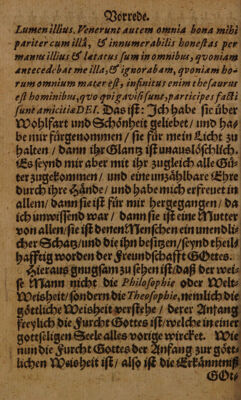 Vorrede.
Lumen illius. Venerunt autem omnia bona mihi
pariter cum illâ, & innumerabilis honestas per
manus illius & lætatus sum in omnibus, quoniam
antecedebat me illa, & ignorabam, quoniam ho-
rum omnium mater est, infinitus enim thesaurus
est hominibus, quo qui usi sunt, participes facti
sunt amicitiæ DEI. Das ist: Ich habe sie über
Wohlfart und Schönheit geliebet / und ha-
be mir fürgenommen / sie für mein Licht zu
halten / dann ihr Glantz ist unauslöschlich.
Es seynd mir aber mit ihr zugleich alle Gü-
ter zugekommen / und eine unzählbare Ehre
durch ihre Hände / und habe mich erfreuet in
allem / dann sie ist für mir hergegangen / da
ich unwissend war / dann sie ist eine Mutter
von allen / sie ist denen Menschen ein unendli-
cher Schatz / und die ihn besitzen / seynd theil-
hafftig worden der Freundschafft GOttes.
Hieraus gnugsam zu sehen ist / daß der wei-
se Mann nicht die Philosophie oder Welt-
Weisheit / sondern die Theosophie, nemlich die
göttliche Weisheit verstehe / derer Anfang
freylich die Furcht Gottes ist / welche in einer
gottseligen Seele alles vorige wircket. Wie
nun die Furcht Gottes der Anfang zur gött-
lichen Weisheit ist / also ist die Erkänntniß
GOt-